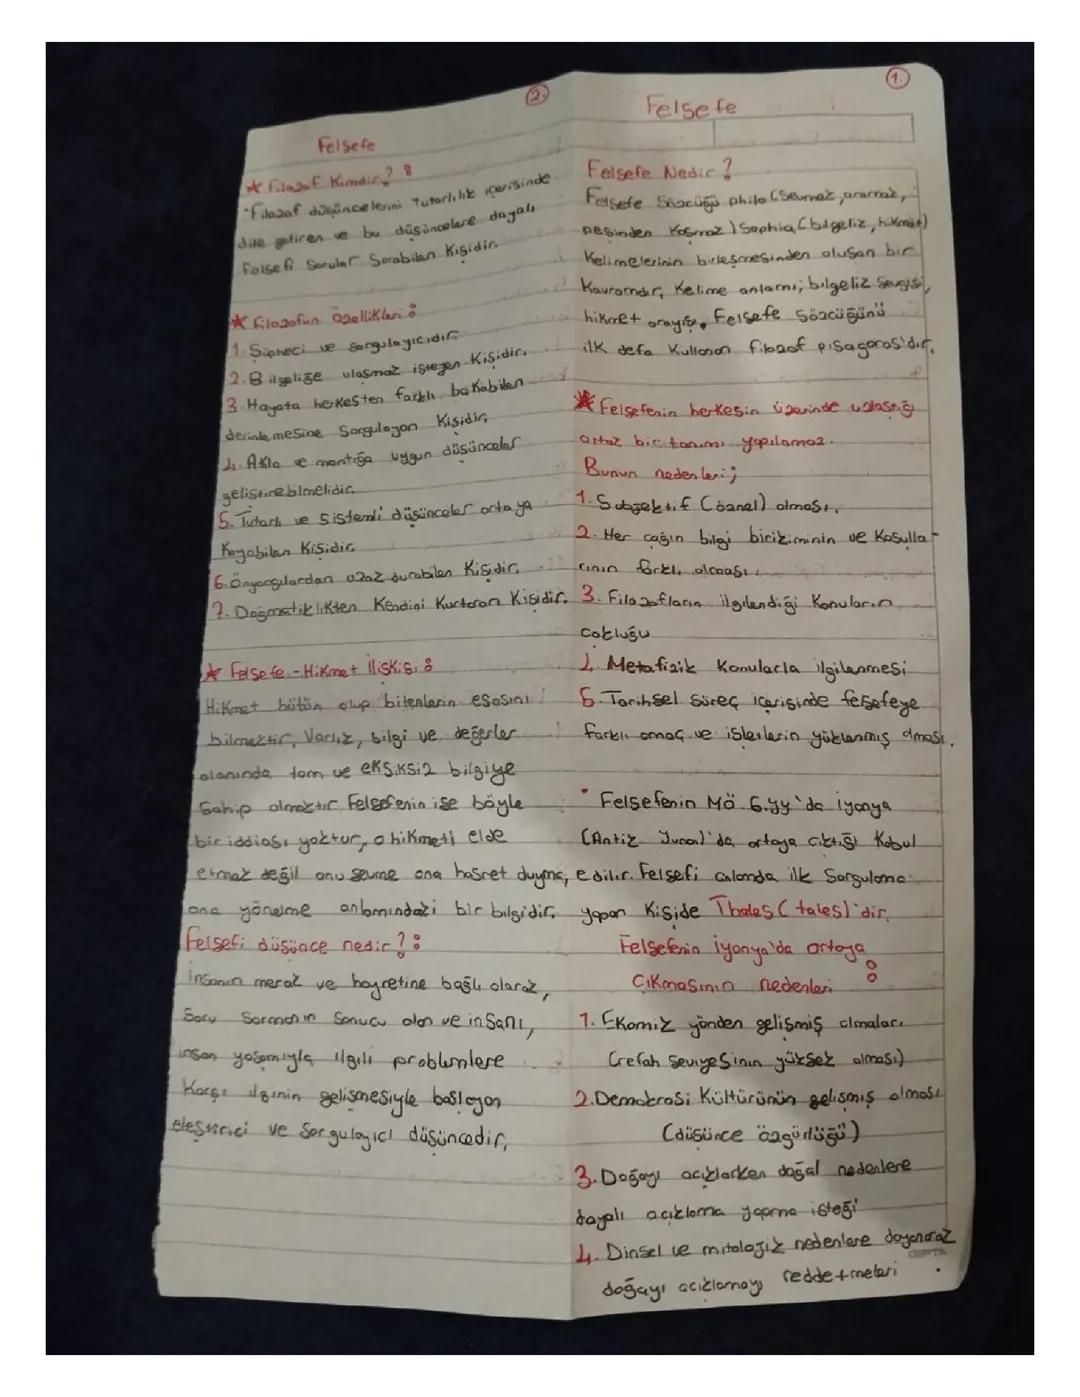 1.
Felsefe
Felsefe Nedir?
Felsefe Sözcüğü philo (Sevmek, aramak,
peşinden koşmak) Sophia (bilgelik, hikmet)
Kelimelerinin birleşmesinden oluşan bir
Kavramdır, Kelime anlamı; bilgelik Sevgisi,
hikmet arayışı, Felsefe Sözcüğünü
ilk defa Kullanan filozof pisagoros'dır.
* Felsefenin herkesin üzerinde uzlaştığı
ortak bir tanımı yapılamaz.
Bunun nedenleri;
1. Subjektif (öznel) olması.
2. Her çağın bilgi birikiminin ve Koşulla-
rının farklı olması.
3. Filozofların ilgilendiği Konuların
çokluğu
4. Metafizik Konularla ilgilenmesi
5. Tarihsel süreç içerisinde felsefeye
farklı amaç ve işlevlerin yüklenmiş olması.
• Felsefenin MÖ 6.yy'da iyonya
(Antik Yunan)'da ortaya çıktığı Kabul
edilir. Felsefi anlamda ilk Sorgulama
yapan Kişide Thales (tales)'dir.
Felsefenin iyonya'da ortaya
Çıkmasının nedenleri:
1. Ekomik yönden gelişmiş olmaları
(refah seviyesinin yüksek olması)
2. Demokrasi Kültürünün gelişmiş olması
(düşünce özgürlüğü)
3. Doğayı açıklarken doğal nedenlere
dayalı açıklama yapma isteği
4. Dinsel ve mitolojik nedenlere dayanarak
doğayı açıklamayı reddetmeleri
2.
Felsefe
* Filozof Kimdir?:
"Filozof düşüncelerini Tutarlılık içerisinde
dile getiren ve bu düşüncelere dayalı
Felsefi Sorular Sorabilen Kişidir.
* Filozofun Özellikleri:
1. Şüpheci ve sorgulayıcıdır.
2. Bilgeliğe ulaşmak isteyen Kişidir.
3. Hayata herkesten farklı bakabilen
derinlemesine Sorgulayan Kişidir.
4. Akla ve mantığa uygun düşünceler
geliştirebilmelidir.
5. Tutarlı ve Sistemli düşünceler ortaya
Koyabilen Kişidir.
6. Önyargılardan uzak durabilen Kişidir.
7. Dogmatiklikten Kendini Kurtaran Kişidir.
* Felsefe - Hikmet ilişkisi:
Hikmet bütün olup bitenlerin esasını
bilmektir, Varlık, bilgi ve değerler
alanında tam ve eksiksiz bilgiye
Sahip olmaktır Felsefenin ise böyle
bir iddiası yoktur, o hikmeti elde
etmek değil onu sevme ona hasret duyma,
ona yönelme anlamındaki bir bilgidir.
Felsefi düşünce nedir?:
insanın merak ve hayretine bağlı olarak,
Soru Sormanın Sonucu olan ve insanı,
insan yaşamıyla ilgili problemlere
Karşı ilginin gelişmesiyle başlayan
eleştirici ve Sorgulayıcı düşüncedir.